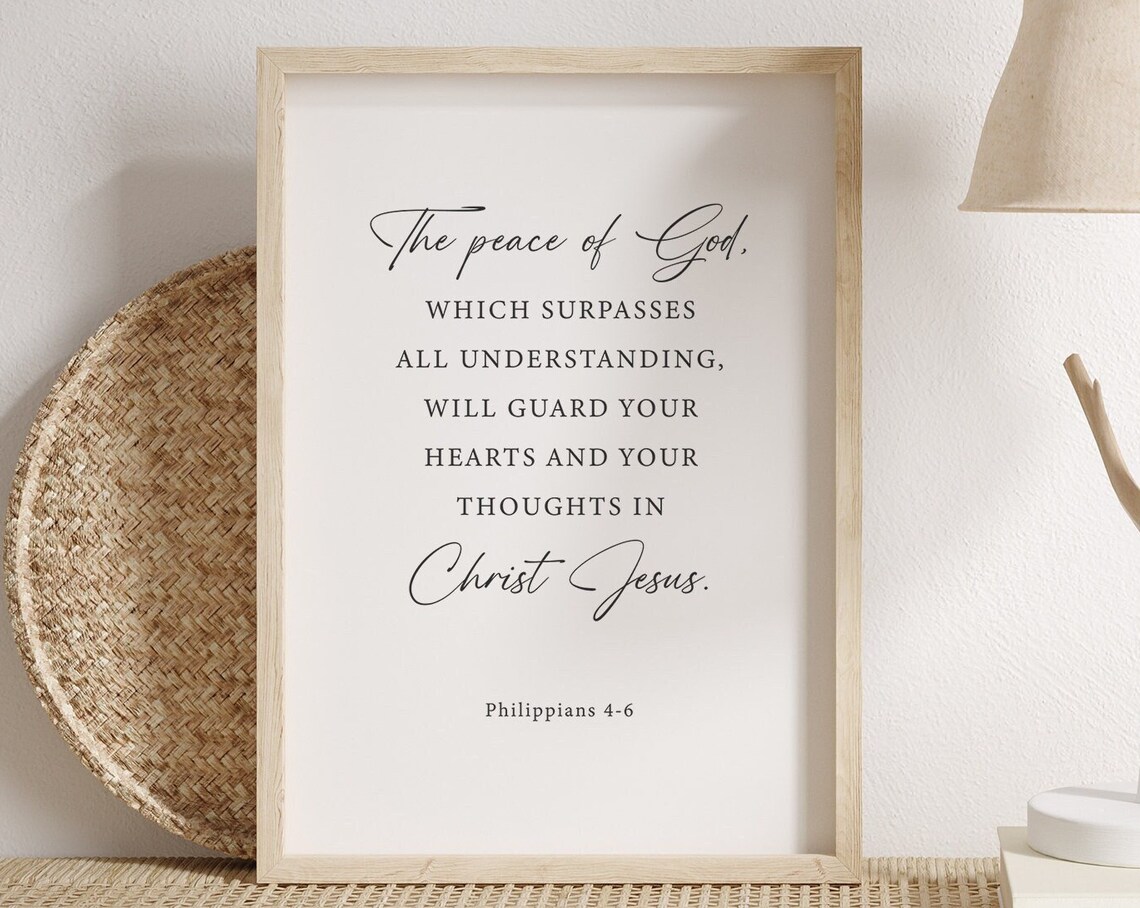 The peace of God,
WHICH SURPASSES
ALL UNDERSTANDING,
WILL GUARD YOUR
HEARTS AND YOUR
THOUGHTS IN
Christ Jesus.
Philippians 4-6